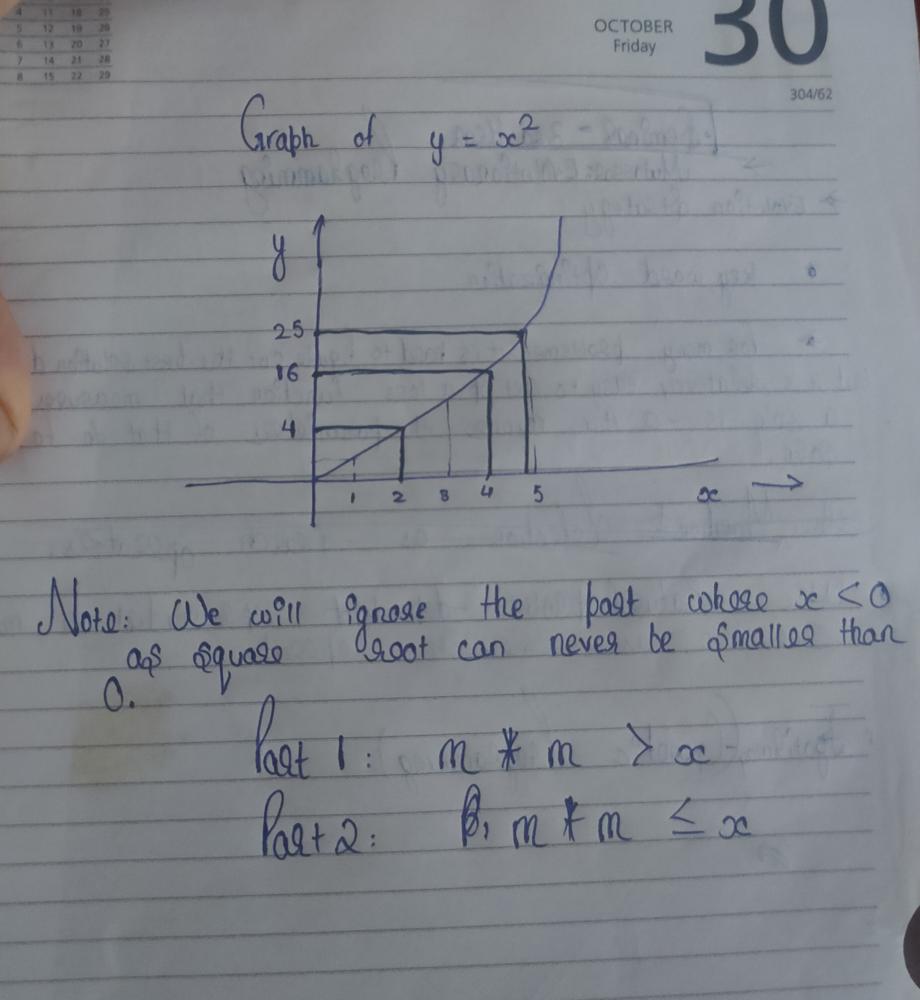 4 11 18 25
5 12 19 26
6 13 20 27
7 14 21 28
8 15 22 29
OCTOBER
Friday
30
304/62
Graph of y = x²
y
25
16
4
1 2 3 4 5 x
Note: We will ignore the part where x < 0
as square root can never be smaller than
0.
Part 1: m * m > x
Part 2: m * m ≤ x